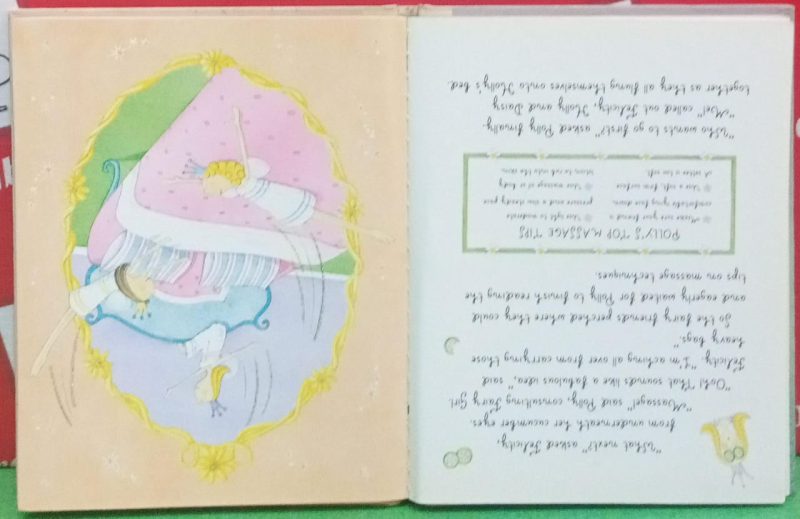 "What next?" asked Felicity,
from underneath her cucumber eyes.
"Massage!" said Polly, consulting Fairy Girl.
"Ooh! That sounds like a fabulous idea," said
Felicity. "I'm aching all over from carrying those
heavy bags."
So the fairy friends perched where they could
and eagerly waited for Polly to finish reading the
tips on massage techniques.
POLLY'S TOP MASSAGE TIPS
Make sure your friend is
comfortable lying face down.
Use a soft, firm surface.
A settee is too soft.
Use light to moderate
pressure and a nice steady pace
Use massage or body
to rub into the skin.
"Who wants to go first?" asked Polly finally.
"Me!" called out Felicity, Holly and Daisy
together as they all flung themselves onto Holly's bed.